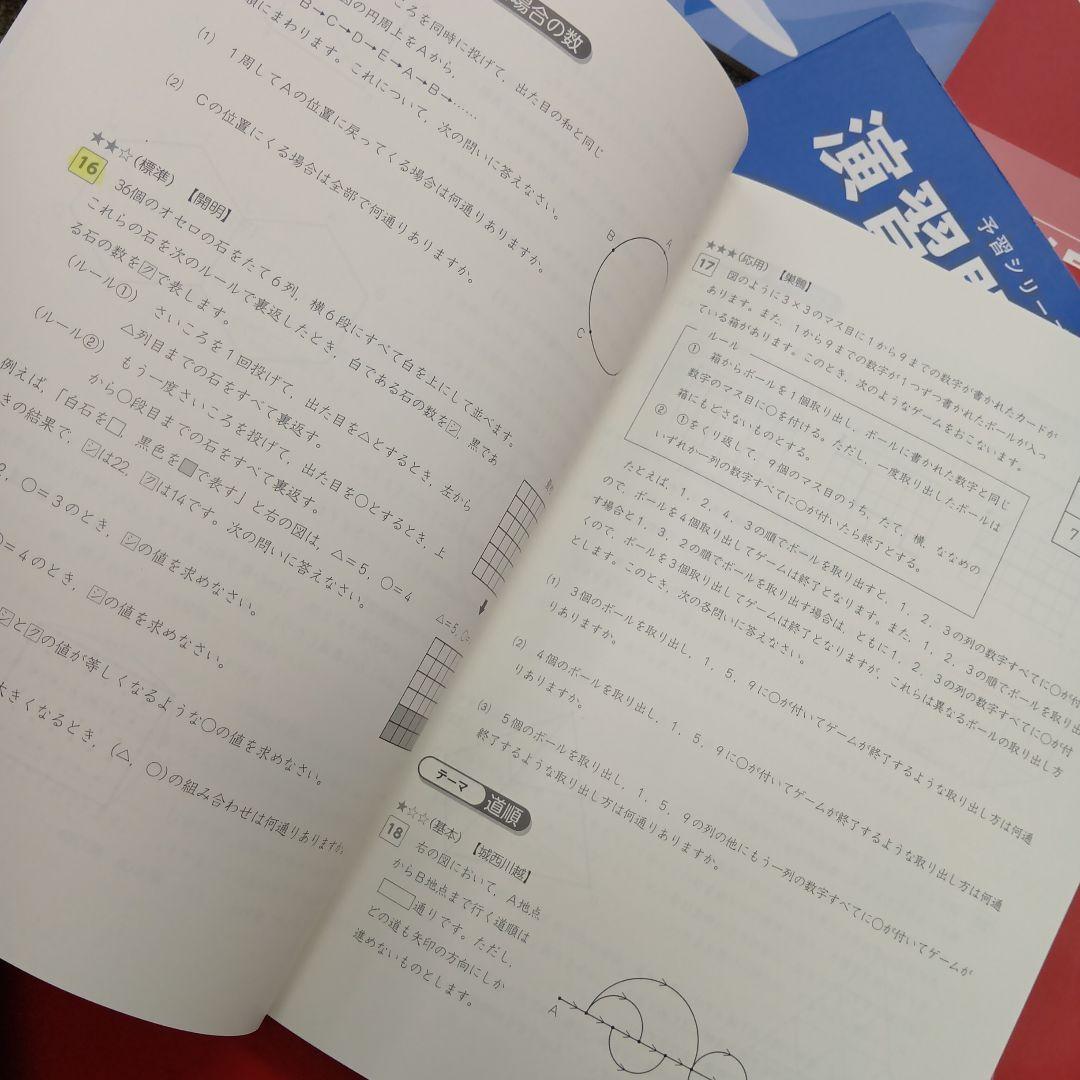 場合の数
ころを同時に投げて，出た目の和と同じ
図の円周上をAから，
B→C→D→E→A→B→……
順にまわります。これについて，次の問いに答えなさい。
(1) 1周してAの位置に戻ってくる場合は何通りありますか。
(2) Cの位置にくる場合は全部で何通りありますか。
B
A
C
★★☆(標準) 【開明】
16 36個のオセロの石をたて6列，横6段にすべて白を上にして並べます。
これらの石を次のルールで裏返したとき，白である石の数を㋛，黒であ
る石の数を㋗で表します。
(ルール①) さいころを1回投げて，出た目を△とするとき，左から
△列目までの石をすべて裏返す。
(ルール②) もう一度さいころを投げて，出た目を○とするとき，上
から○段目までの石をすべて裏返す。
例えば，「白石を□，黒色を■で表す」と右の図は，△=5，○=4
きの結果で，㋛は22，㋗は14です。次の問いに答えなさい。
2，○=3のとき，㋛の値を求めなさい。
○=4のとき，㋛の値を求めなさい。
㋛と㋗の値が等しくなるような○の値を求めなさい。
大きくなるとき，(△，○)の組み合わせは何通りありますか
△=5，○=
演習
予習シリーズ
★★★(応用) 【巣鴨】
17 図のように3×3のマス目に1から9までの数字が書かれたカードが
あります。また，1から9までの数字が1つずつ書かれたボールが入っ
ている箱があります。このとき，次のようなゲームをおこないます。
ルール
① 箱からボールを1個取り出し，ボールに書かれた数字と同じ
数字のマス目に○を付ける。ただし，一度取り出したボールは
箱にもどさないものとする。
② ①をくり返して，9個のマス目のうち，たて，横，ななめの
いずれか一列の数字すべてに○が付いたら終了とする。
7
たとえば，1，2，4，3の順でボールを取り出すと，1，2，3の列の数字すべてに○が付
ので，ボールを4個取り出してゲームは終了となります。また，1，2，3の順でボールを取り出
す場合と1，3，2の順でボールを取り出す場合は，ともに1，2，3の列の数字すべてに○が付
くので，ボールを3個取り出してゲームは終了となりますが，これらは異なるボールの取り出し方
とします。このとき，次の各問いに答えなさい。
(1) 3個のボールを取り出し，1，5，9に○が付いてゲームが終了するような取り出し方は何通
りありますか。
(2) 4個のボールを取り出し，1，5，9に○が付いてゲームが終了するような取り出し方は何通
りありますか。
(3) 5個のボールを取り出し，1，5，9の列の他にもう一列の数字すべてに○が付いてゲームが
終了するような取り出し方は何通りありますか。
テーマ 道順
★☆☆(基本) 【城西川越】
18 右の図において，A地点
からB地点まで行く道順は
□通りです。ただし，
どの道も矢印の方向にしか
進めないものとします。
A